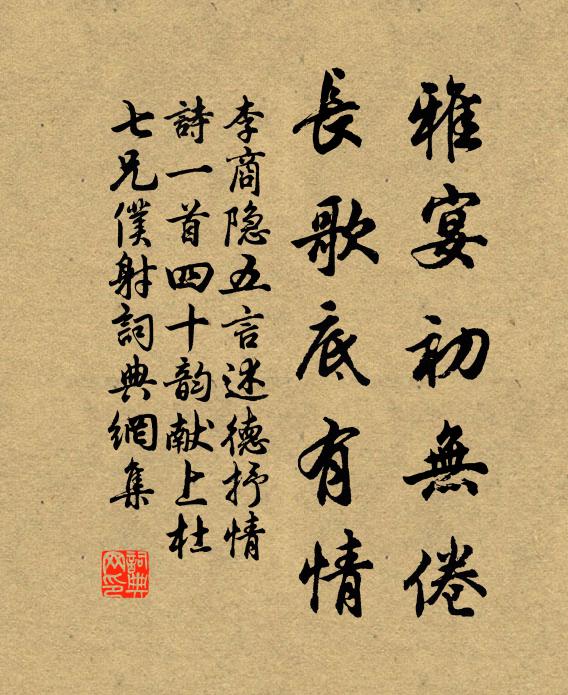 雅宴初無倦
長歌底有情
李商隐五言述德抒情
詩一首四十韵献上杜
七兄僕射詞典網集
詞典
网印